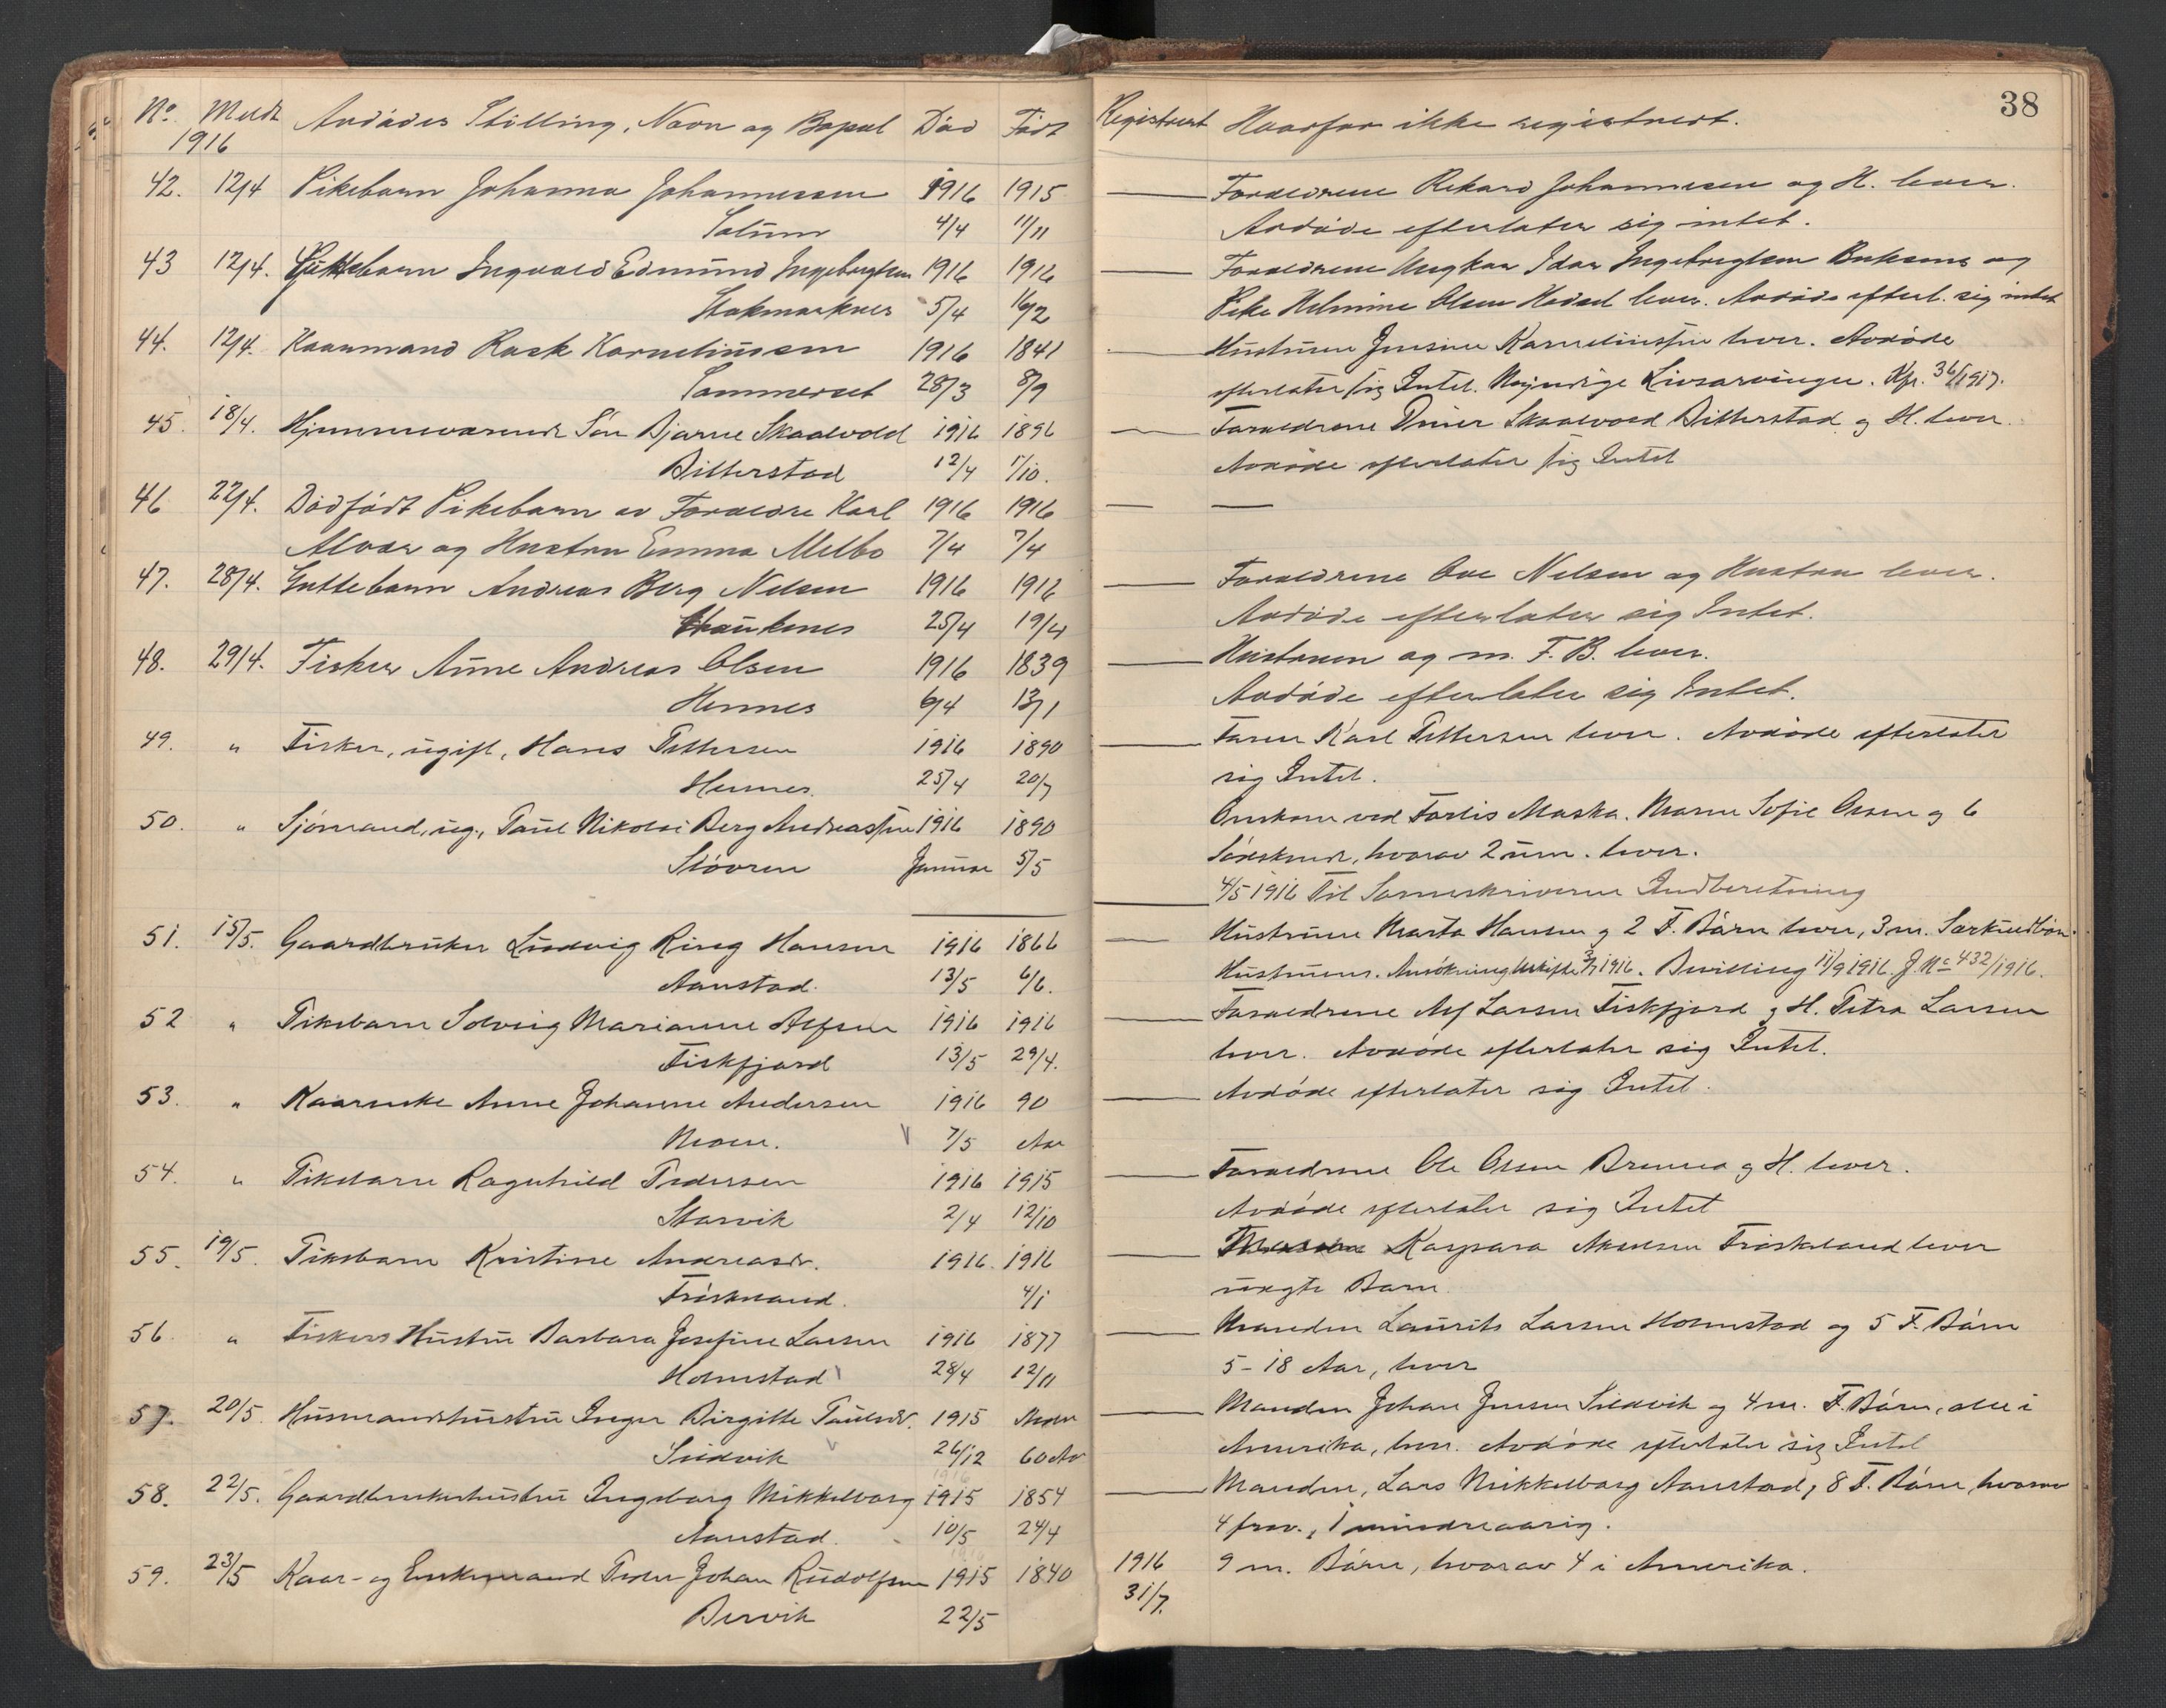 38
No. Meldt Avdødes Stilling, Navn og Bopæl Død Født Registrert Hvorfor ikke registrert.
1916
42. 12/4 Pikebarn Johanna Johannessen 1916 1915 Forældrene Rikard Johannesen og H. lever.
4/4 11/11 Avdøde efterlater sig intet.
43 12/4. Guttebarn Ingvald Edmund Ingebrigtsen 1916 1916 Forældrene Ungkar Idar Ingebrigtsen og
Stokmarknes 5/4 16/2 Pike Helmine Olsen lever. Avdøde efterl. sig intet
44. 12/4. Kaarmand Rask Korneliussen 1916 1841 Hustruen Jensine Korneliussen lever. Avdøde
Sommerset 28/3 8/9 efterlater sig Intet. Myndige Livsarvinger. Kfr. 36/1917.
45. 18/4. Hjemmeværende Søn Bjarne Skaalvold 1916 1896 Forældrene Skaalvold Bitterstad og H. lever.
Bitterstad 12/4 1/10. Avdøde efterlater sig Intet
46 22/4. Dødfødt Pikebarn av Forældre Karl 1916 1916
Alvar og Hustru Emma Melbo 7/4 7/4
47. 28/4. Guttebarn Andreas Berg Nelsen 1916 1916 Forældrene Ove Nelsen og Hustru lever.
25/4 19/4 Avdøde efterlater sig Intet.
48. 29/4. Fisker Arne Andreas Olsen 1916 1839 Hustruen og m. F. B. lever.
Hennes 6/4 13/1 Avdøde efterlater sig Intet.
49. " Fisker, ugift, Hans Pettersen 1916 1890 Faren Karl Pettersen lever. Avdøde efterlater
Hennes. 25/4 20/7 sig Intet.
50. " Sjømand, ug., Paul Nikolai Berg Andreassen 1916 1890 Omkom ved Forlis Maska. Moren Sofie Olsen og 6
Januar 5/5 Søskende, hvorav 2 um. lever.
4/5 1916 Til Sorenskriveren Indberetning
51. 15/5. Gaardbruker Ludvig Ring Hansen 1916 1866 Hustruen Marta Hansen og 2 F. Børn lever, 3 m. Særkuldbørn
Aanstad. 13/5 6/6. Hustruens. Ansøkning Uskifte 3/7 1916. Bevilling 11/9 1916. J. No 432/1916.
52 " Pikebarn Solveig Marianne Alfsen 1916 1916 Forældrene Alf Larsen Fiskfjord og H. Petra Larsen
Fiskfjord 13/5 29/4. lever. Avdøde efterlater sig Intet.
53. " Kaarenke Anne Johanne Andersen 1916 90 Avdøde efterlater sig Intet.
Moen. 7/5 Aar
54. " Pikebarn Ragnhild Pedersen 1916 1915 Forældrene Ole Olsen og H. lever.
Storvik 2/4 12/10 Avdøde efterlater sig Intet
55. 19/5. Pikebarn Kristine Andreasdr. 1916. 1916 Kaspara Frøskeland lever
Frøskeland. 4/1 uægte Barn.
56. " Fiskers Hustru Barbara Josefine Larsen 1916 1877 Manden Laurits Larsen Holmstad og 5 F. Børn
Holmstad 28/4 12/11 5-18 Aar, lever
57. 20/5. Husmandshustru Inger Birgitte Paulsdr. 1915 Manden Johan Jensen Sildvik og 4 m. F. Børn, alle i
Sildvik 26/12 60 Aar Amerika, lever. Avdøde efterlater sig Intet
58. 22/5. Gaardbrukerhustru Ingeborg Mikkelborg 1915 1854 Manden, Lars Mikkelborg Aanstad, 8 F. Børn, hvorav
Aanstad. 10/5 24/4 4 frav., 1 mindreaarig.
59. 23/5 Kaar- og Enkemand Peder Johan Rudolfsen 1915 1840 1916 9 m. Børn, hvorav 4 i Amerika.
Bervik 22/5 31/7.